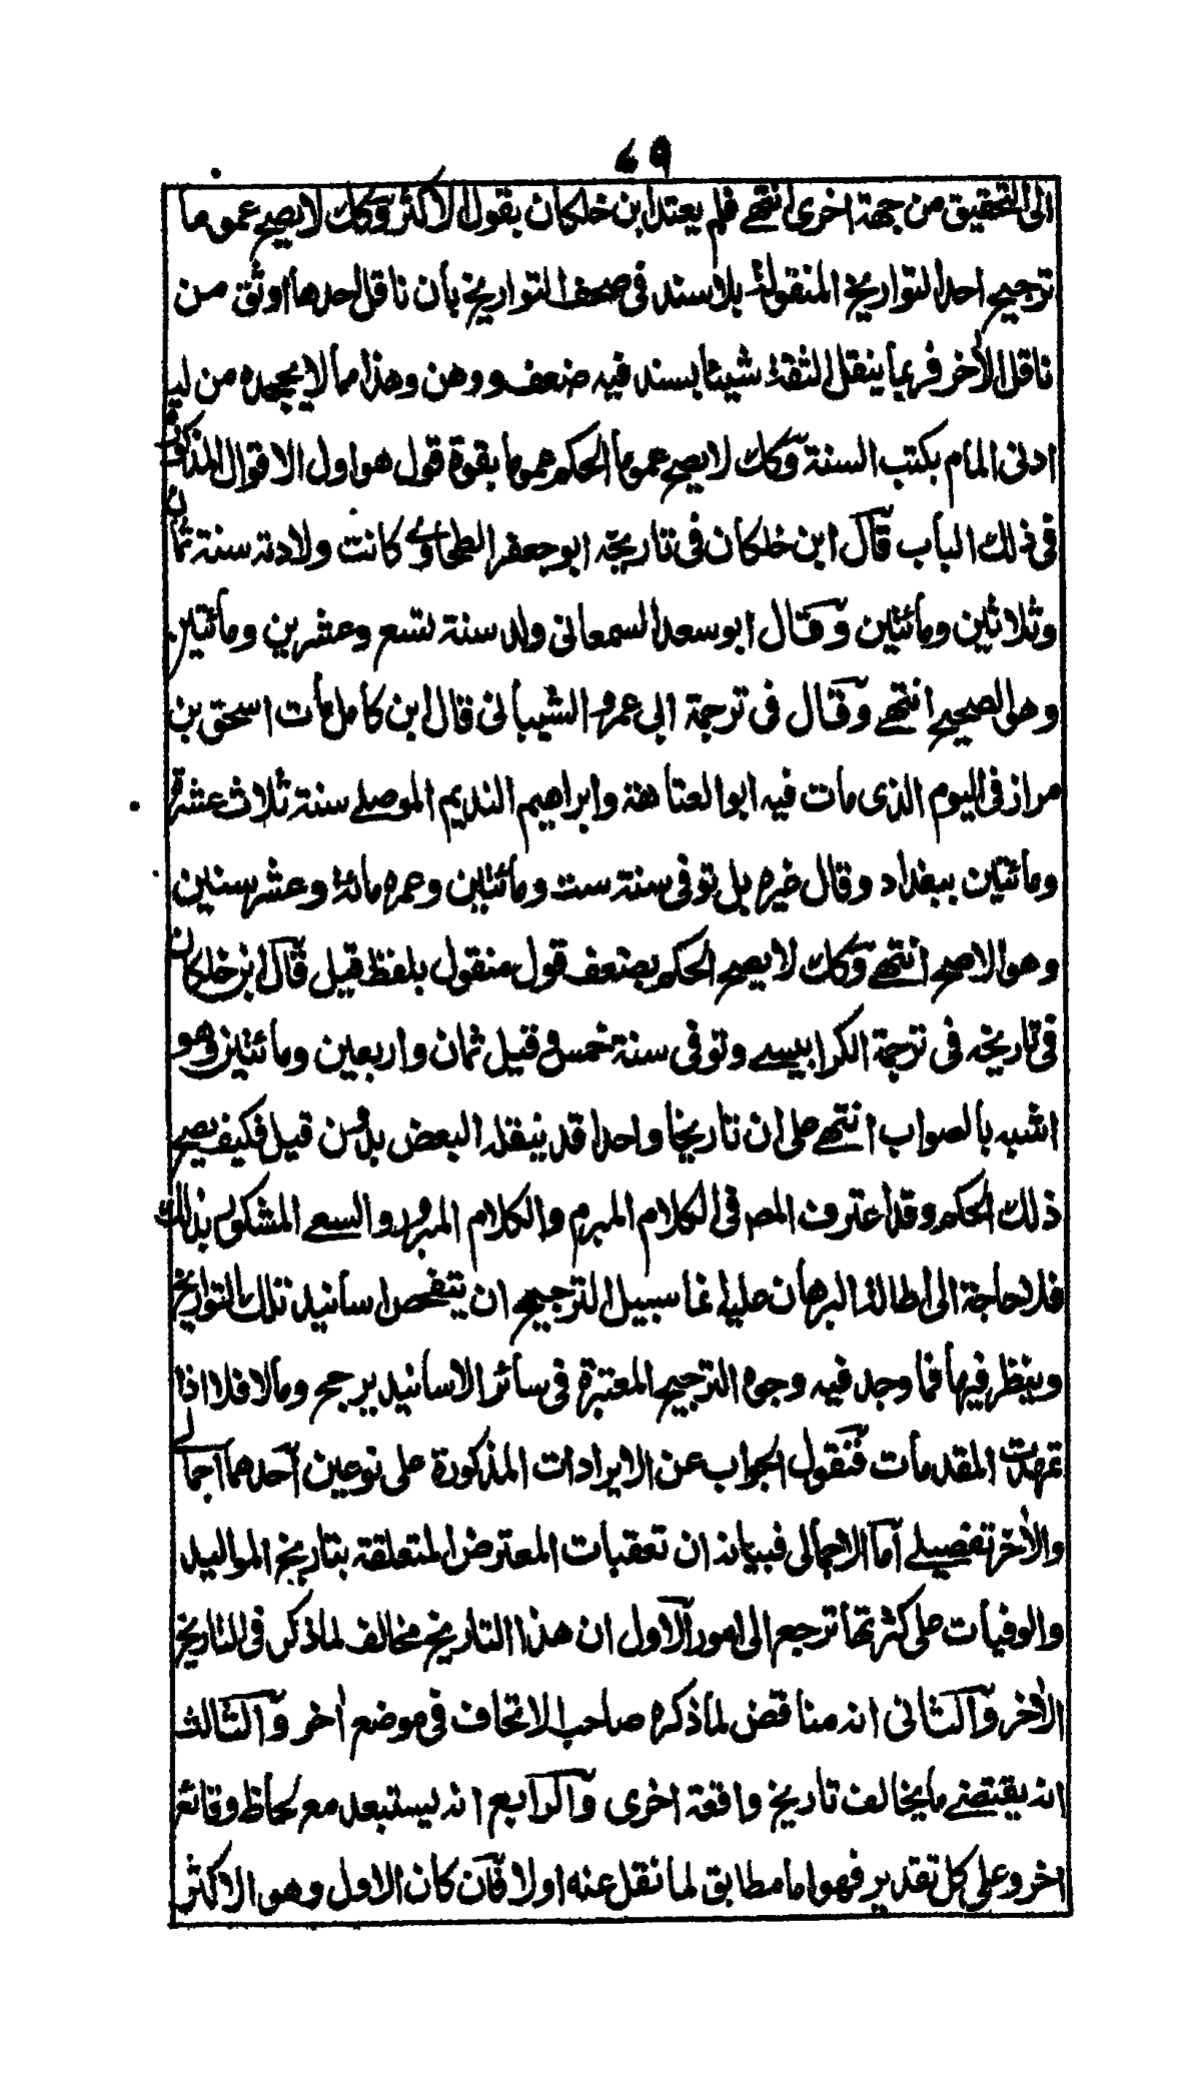 ٤٩
الى التحقيق من جهة اخرى انتهى فلم يعتد ابن خلكان بقول الاكثر وكك لا يصح عموما
ترجيح احد التواريخ المنقولة بلا سند فى صحف التواريخ بأن ناقل احدها اوثق من
ناقل الأخر فربما ينقل الثقة شيئا بسند فيه ضعف ووهن وهذا مما لا يجحده من له
ادنى المام بكتب السنة وكك لا يصح عموما الحكم عموما بقوة قول هو اول الاقوال المذكورة
فى ذلك الباب قال ابن خلكان فى تاريخه ابو جعفر الطحاوي كانت ولادته سنة ثمان
وثلاثين ومائتين وقال ابو سعد السمعانى ولد سنة تسع وعشرين ومائتين
وهو الصحيح انتهى وقال فى ترجمة ابى عمرو الشيبانى قال ابن كامل مات اسحق بن
مرار فى اليوم الذى مات فيه ابو العتاهية وابراهيم النديم الموصلى سنة ثلاث عشرة
ومائتين ببغداد وقال غيره بل توفى سنة ست ومائتين وعمره مائة وعشر سنين
وهو الاصح انتهى وكك لا يصح الحكم بضعف قول منقول بلفظ قيل قال ابن خلكان
فى تاريخه فى ترجمة الكرابيسى وتوفى سنة خمس وقيل ثمان واربعين ومائتين وهو
اشبه بالصواب انتهى على ان تاريخا واحدا قد ينقله البعض بدون قيل فكيف يصح
ذلك الحكم وقد اعترف المص فى الكلام المبرم والكلام المبرور والسعى المشكور بذلك
فلا حاجة الى اطالة البرهان عليه انما سبيل الترجيح ان يتفحص اسانيد تلك التواريخ
وينظر فيها فما وجد فيه وجوه الترجيح المعتبرة فى سائر الاسانيد يرجح ومالا فلا اذا
تمهدت المقدمات فنقول الجواب عن الايرادات المذكورة على نوعين احدهما اجمالى
والأخر تفصيلى اما الاجمالى فبيانه ان تعقبات المعترض المتعلقة بتاريخ المواليد
والوفيات على كثرتها ترجع الى امور الاول ان هذا التاريخ مخالف لما ذكر فى التاريخ
الأخر والثانى انه مناقض لما ذكره صاحب الاتحاف فى موضع أخر والثالث
انه يقتضى ما يخالف تاريخ واقعة اخرى والرابع انه يستبعد مع لحاظ وقائع
اخر وعلى كل تقدير فهو اما مطابق لما نقل عنه او لا فان كان الاول وهو الاكثر